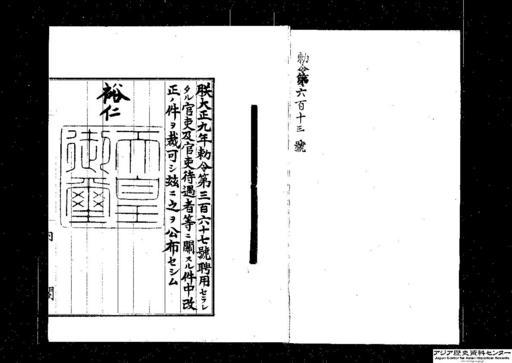 勅令第六百十三號
朕大正九年勅令第三百六十七號聘用セラレ
タル官吏及官吏待遇者等ニ關スル件中改
正ノ件ヲ裁可シ茲ニ之ヲ公布セシム
裕仁
天皇
御璽
内閣
アジア歴史資料センター
Japan Center for Asian Historical Records